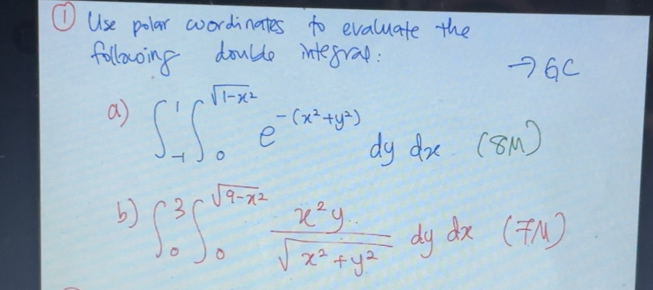 ① Use polar coordinates to evaluate the
following double integral:
→ GC
a) ∫₋₁¹ ∫₀^√(1-x²) e^-(x²+y²) dy dx (8M)
b) ∫₀³ ∫₀^√(9-x²) x²y / √(x²+y²) dy dx (7M)